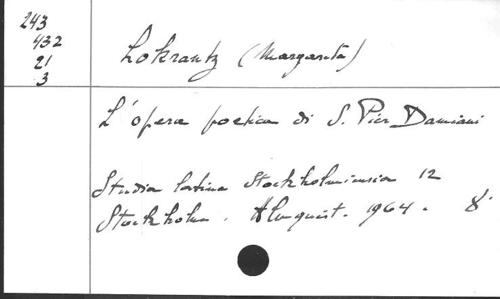 243
432
21
3
Lokrantz (Margareta)
L'opera poetica di S. Pier Damiani
Studia latina Stockholmiensia 12
Stockholm. Almquist. 1964. 8°